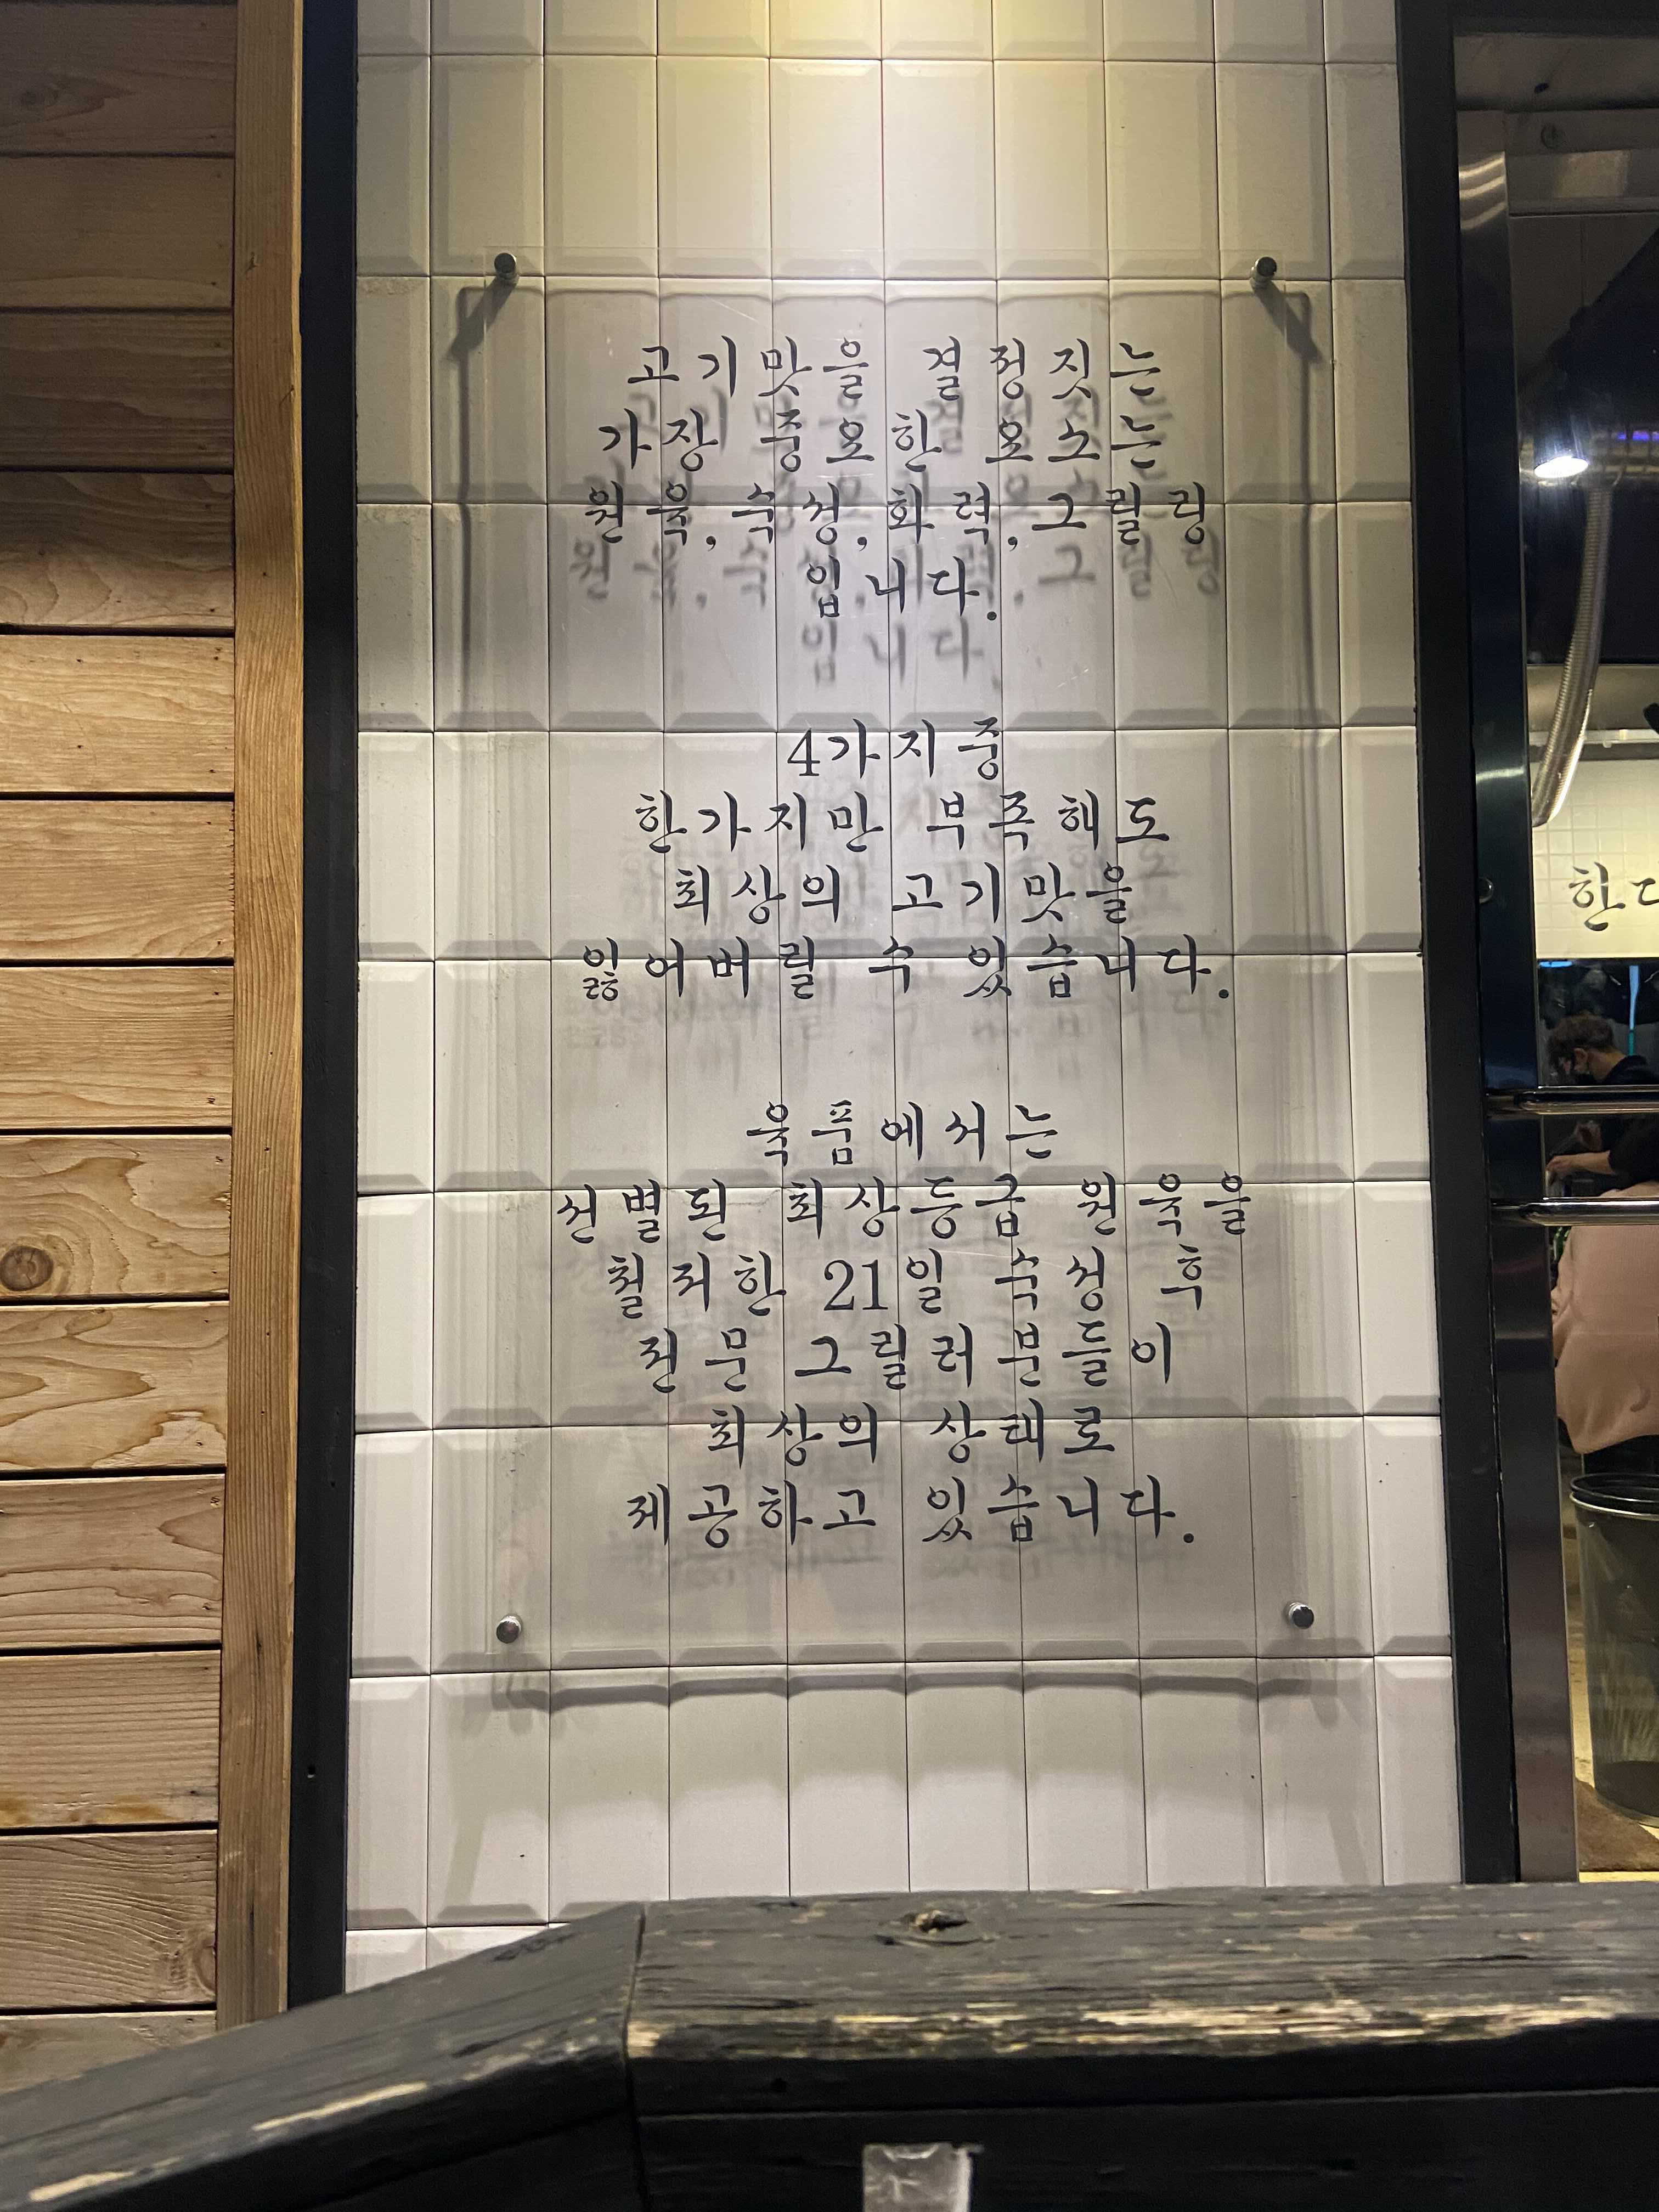 고기맛을 결정짓는
가장 중요한 요소는
원육, 숙성, 화력, 그릴링
입니다.
4가지중
한가지만 부족해도
최상의 고기맛을
잃어버릴 수 있습니다.
육풍에서는
선별된 최상등급 원육을
철저한 21일 숙성 후
전문 그릴러분들이
최상의 상태로
제공하고 있습니다.